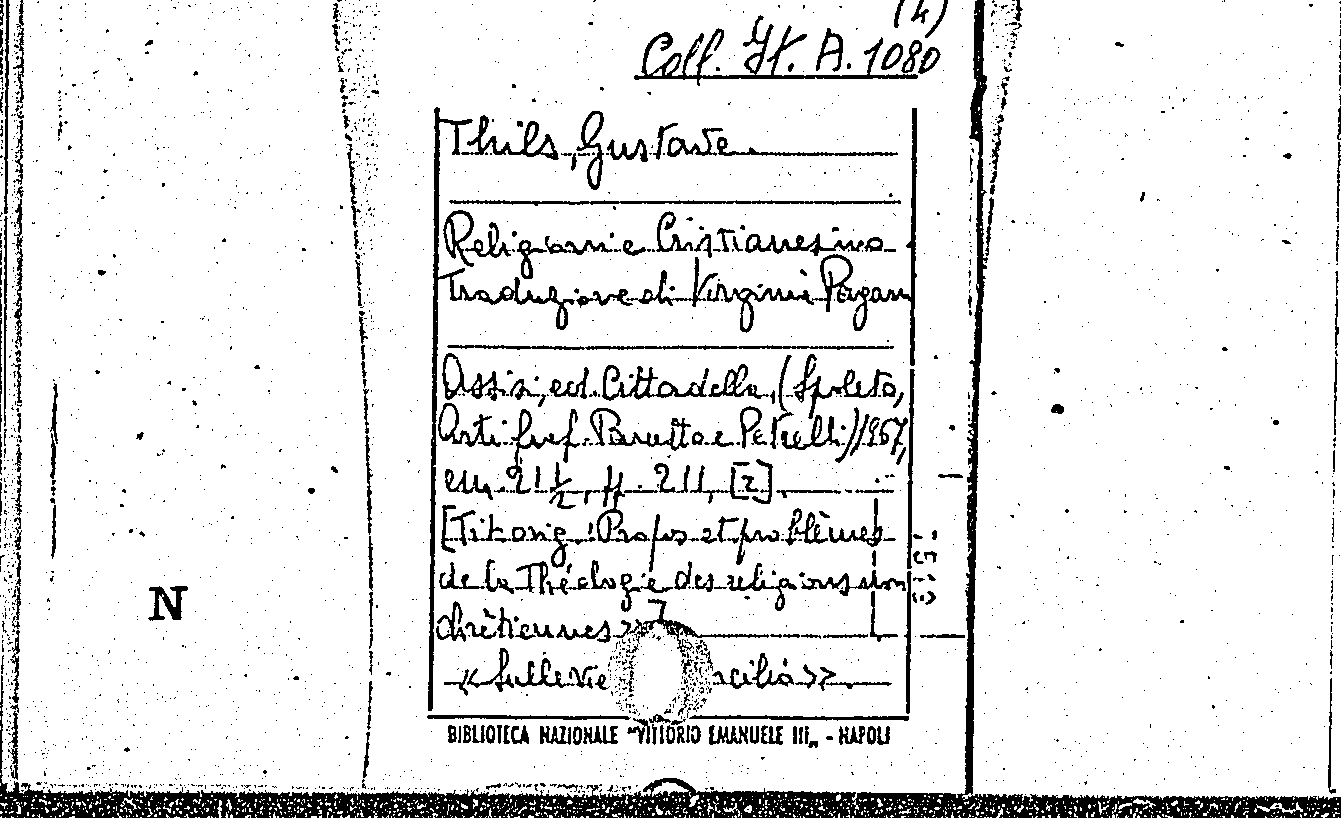 (4)
Coll. It. A. 1080
Thils, Gustave.
Religioni e Cristianesimo.
Traduzione di Virginia Pagani
Assisi, ed. Cittadella, (Spoleto,
Arti graf. Panetto e Petrelli) 1967,
cm. 21 1/2, pp. 211, [2].
[Tit. orig.: Propos et problèmes
de la Théologie des religions non
chrètiennes»]
«Sulle vie cilio».
N
BIBLIOTECA NAZIONALE "VITTORIO EMANUELE III„ - NAPOLI